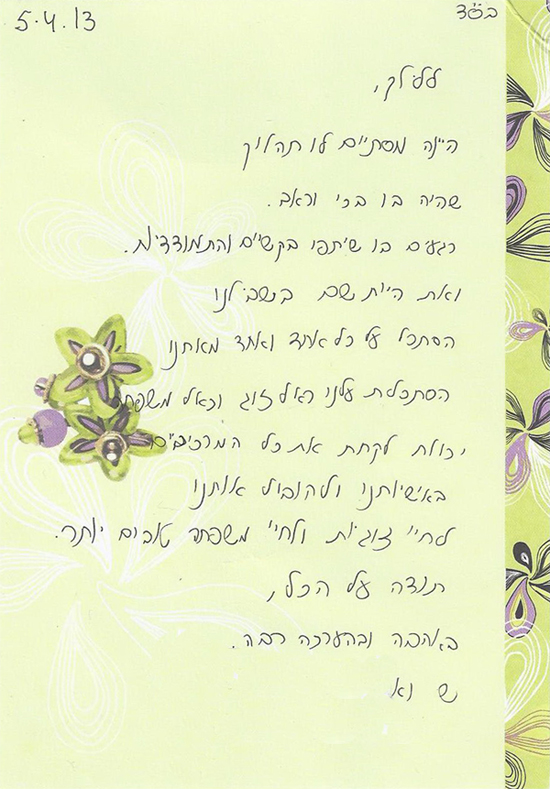 5.4.13
בס"ד
לליאק,
היינה מסתיים לו תהליך
שהיה בו בכי וכאב.
רגעים בו שיתפו בקשיים והתמודדויות.
ואת היית שם בשבילנו
הסתכל על כל אחד ואחד מאתנו
הסתכלת עלינו כאל זוג וכאל משפחה
יכולת לקחת את כל המרכיבים
באישיותנו ולהוביל אותנו
לחיי זוגיות ולחיי משפחה טובים יותר.
תודה על הכל,
באהבה ובהערכה רבה.
ש וא